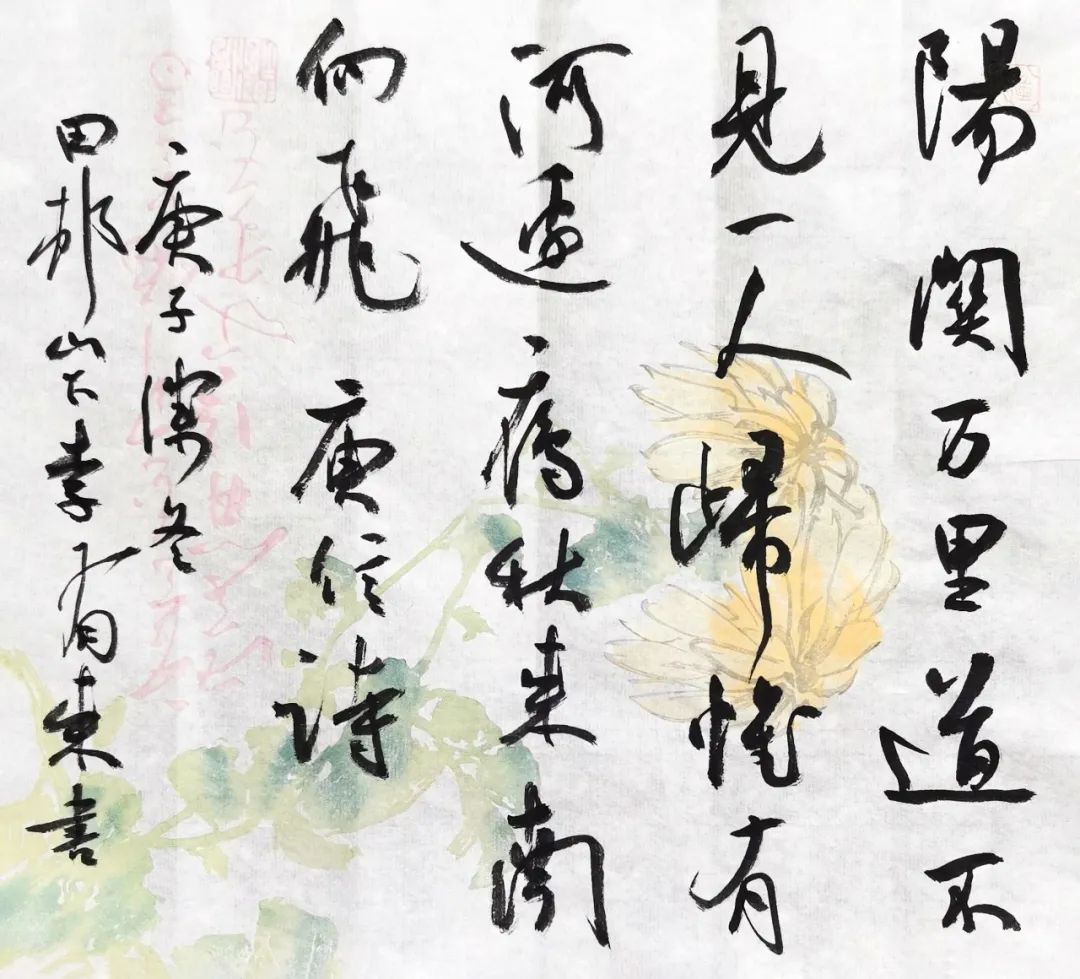 陽関万里道不
見一人歸惟有
河邊鴈秋来南
向飛 庾信詩
庚子深冬
田邨山李有来書